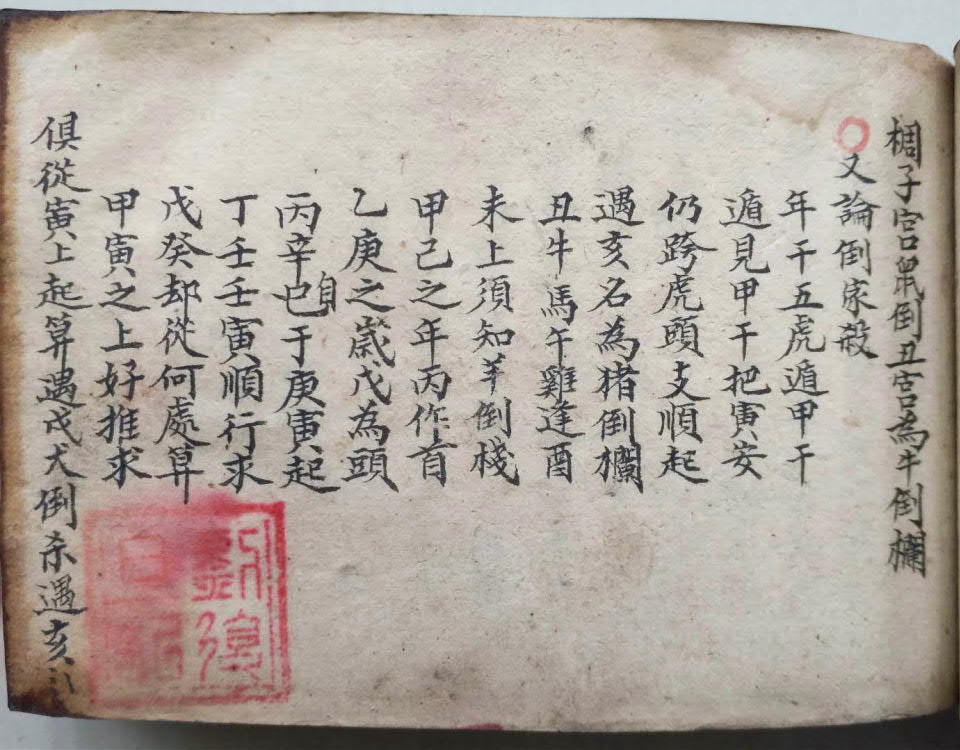 椆子宮鼠倒丑宮為牛倒欄
又論倒家殺
年干五虎遁甲干
遁見甲干把寅安
仍跨虎頭支順起
遇亥名為猪倒欄
丑牛馬午雞逢酉
未上須知羊倒棧
甲己之年丙作首
乙庚之歲戊為頭
丙辛也自于庚寅起
丁壬壬寅順行求
戊癸却從何處算
甲寅之上好推求
俱從寅上起算遇戌犬倒杀遇亥